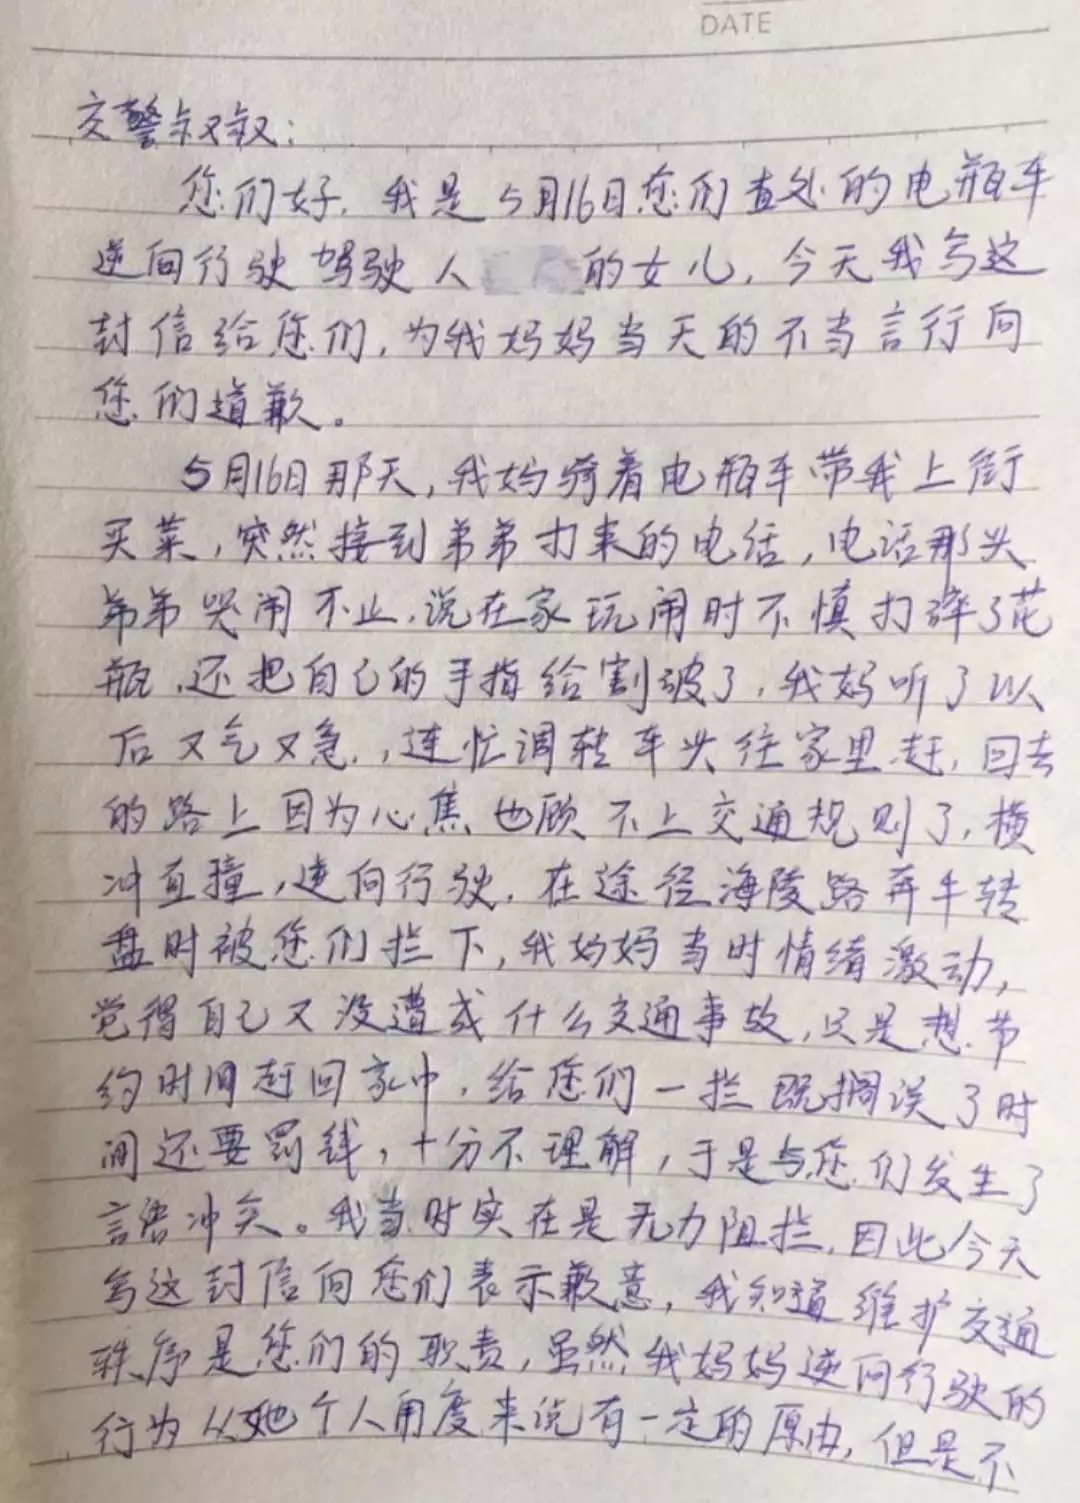 DATE
交警叔叔：
您们好，我是5月16日您们查处的电瓶车
逆向行驶驾驶人的女儿，今天我写这
封信给您们，为我妈妈当天的不当言行向
您们道歉。
5月16日那天，我妈骑着电瓶车带我上街
买菜，突然接到弟弟打来的电话，电话那头
弟弟哭闹不止，说在家玩闹时不慎打碎了花
瓶，还把自己的手指给割破了，我妈听了以
后又气又急，连忙调转车头往家里赶，回去
的路上因为心焦也顾不上交通规则了，横
冲直撞，逆向行驶，在途径海陵路奔牛转
盘时被您们拦下，我妈妈当时情绪激动，
觉得自己又没遭成什么交通事故，只是想节
约时间赶回家中，给您们一拦既搁误了时
间还要罚钱，十分不理解，于是与您们发生了
言语冲突。我当时实在是无力阻拦，因此今天
写这封信向您们表示歉意，我知道维护交通
秩序是您们的职责，虽然我妈妈逆向行驶的
行为从她个人角度来说有一定的原由，但是不